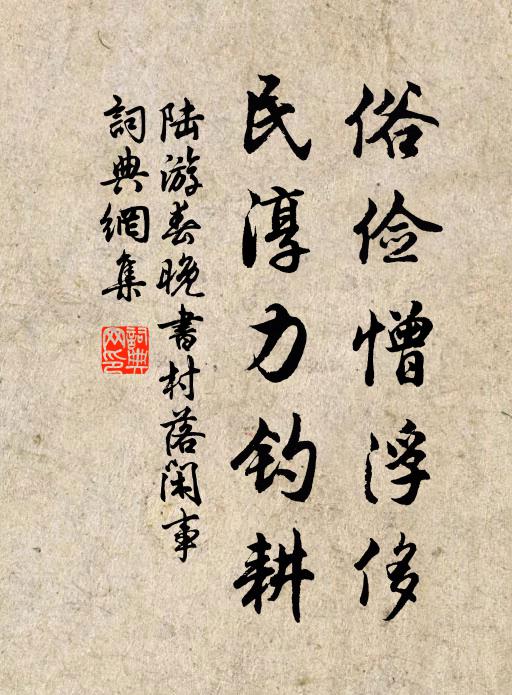 俗俭憎浮侈
民淳力钓耕
陆游春晚书村落闲事
詞典網集
詞典网印